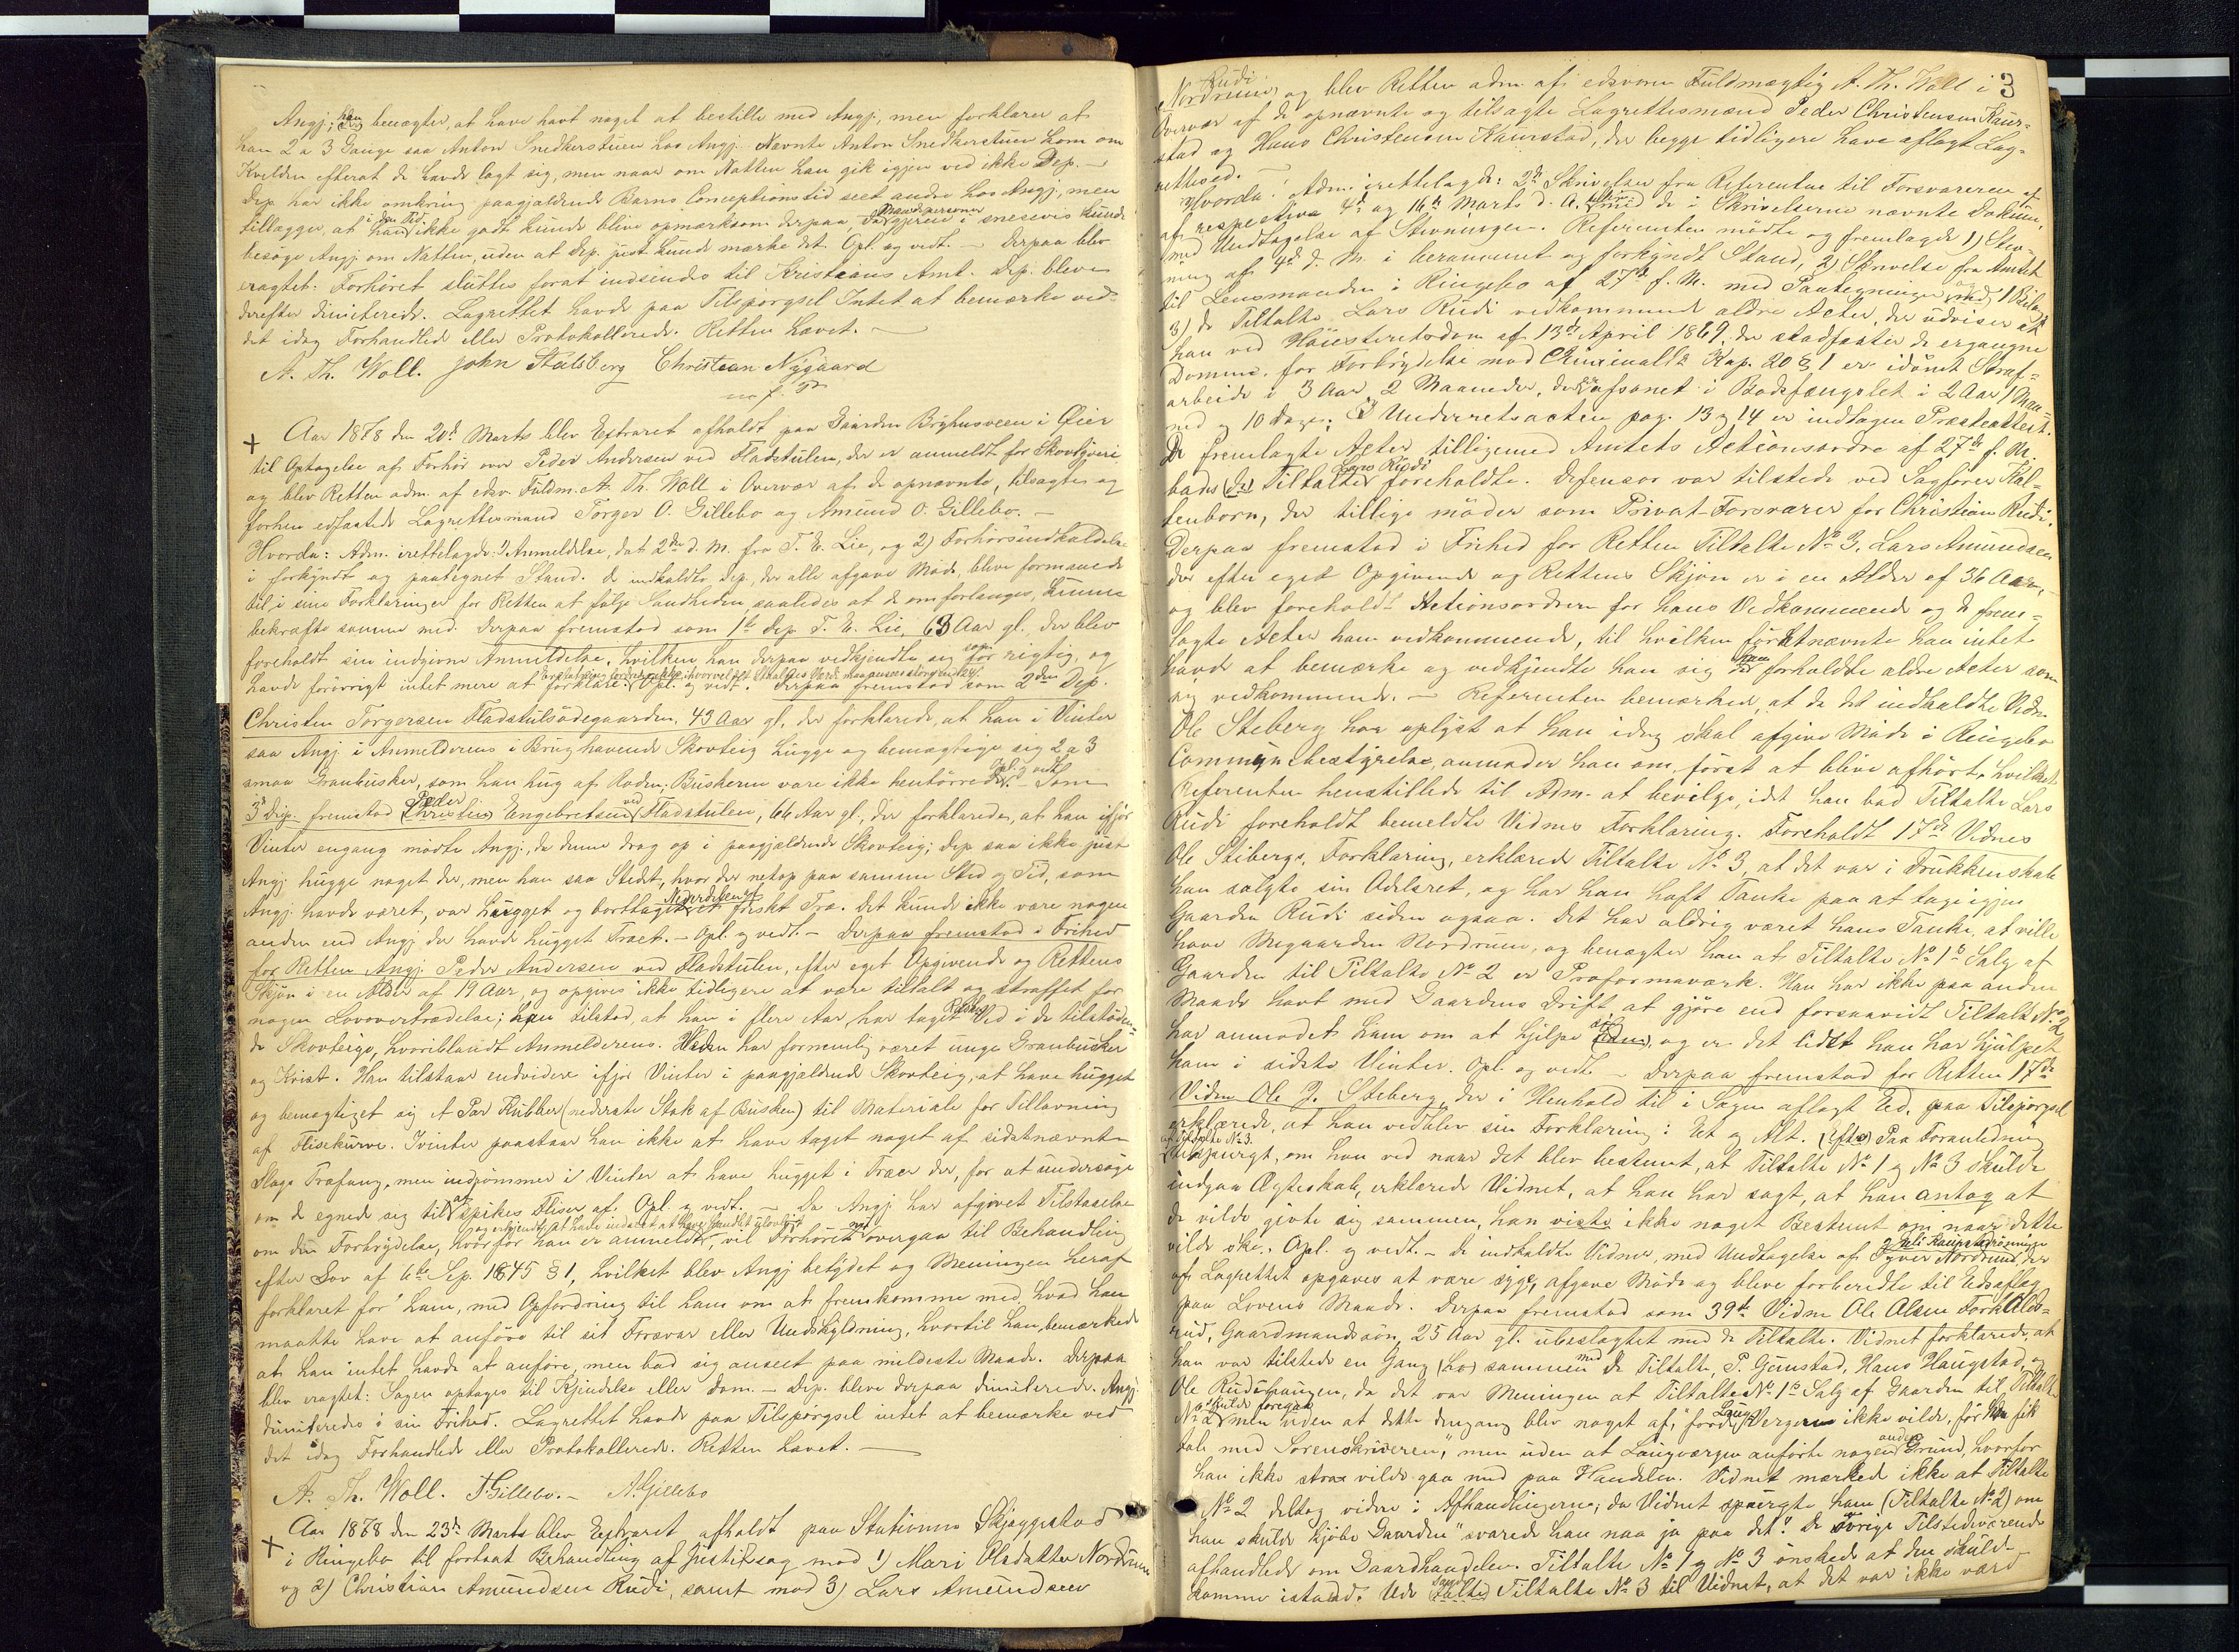 Angj; han benægter, at have havt noget at bestille med Angj, men forklarer at
han 2 a 3 Gange saa Anton Snedkerstuen hos Angj. Nævnte Anton Snedkerstuen kom om
Kvelden efterat de havde lagt sig, men naar om Natten han gik igjen ved ikke Dep. —
Dep. har ikke omkring paagjældende Barns Conceptionstid seet andre hos Angj, men
tillægger, at han i den Tid ikke godt kunde blive opmærksom derpaa, da Mandspersoner gjerne i snesevis kunde
besøge Angj. om Natten, uden at Dep. just kunde mærke det. Opl. og vedt. — Derpaa blev
eragtet: Forhøret sluttes forat indsendes til Kristians Amt. Dep. bleve
derefter dimiterede. Lagrettet havde paa Tilspørgsel Intet at bemærke ved
det idag Forhandlede eller Protokollerede. Retten hævet. —
A. Th. Woll. John Stalsberg Christian Nygaard
m. f. P.
Aar 1878 den 20de Marts blev Extraret afholdt paa Gaarden Bryhusveen i Øier
til Optagelse af Forhør over Peder Andersen ved Fladstulen, der er anmeldt for Skovtyveri
og blev Retten adm. af edsv. Fuldm. A. Th. Woll i Overvær af de opnævnte, tilsagte og
forhen edfæstede Lagrettesmænd Torger O. Gillebo og Amund O. Gillebo. —
Hvorda: Adm. irettelagde: 1) Anmeldelse, dat 2den d. M. fra T. E. Lie, og 2) Forhørsindkaldelse
i forkyndt og paategnet Stand. De indkaldte Dep., der alle afgave Møde, bleve formanede
til i sine Forklaringer for Retten at følge Sandheden, saaledes at de om forlanges, kunne
bekræfte samme med. Derpaa fremstod som 1ste Dep. T. E. Lie, 63 Aar gl. der blev
foreholdt sin indgivne Anmeldelse, hvilken han derpaa vedkjendte sig som rigtig, og
havde forøvrigt intet mere at forklare. Opl. og vedt. Derpaa fremstod som 2den Dep.
Christen Torgersen Fladstulsødegaarden, 43 Aar gl, der forklarede, at han i Vinter
saa Angj i Anmelderens i Brug havende Skovteig hugge og bemægtige sig 2 a 3
smaa Granbusker, som han hug af Roden; Buskerne vare ikke hentørrede. Opl. og vedt. — Som
3de Dep. fremstod Peder Engebretsen ved Fladstulen, 66 Aar gl, der forklarede, at han ifjor
Vinter engang mødte Angj, da denne drog op i paagjældende Skovteig; Dep saa ikke just
Angj hugge noget der, men han saa Stedt, hvor der netop paa samme Sted og Tid, som
Angj. havde været, var hugget og borttaget Nederdelen af et friskt Træ. Det kunde ikke være nogen
anden end Angj der havde hugget Træet. — Opl. og vedt. — Derpaa fremstod i Frihed
for Retten Angj Peder Andersen ved Fladstulen, efter eget Opgivende og Rettens
Skjøn i en Alder af 19 Aar, og opgives ikke tidligere at være tiltalt og straffet for
nogen Lovovertrædelse; han tilstod, at han i flere Aar har taget Ved i de tilstøden-
de Skovteige, hvoriblandt Anmelderens. Veden har fornemlig været unge Granbusker
og Kvist. Han tilstaar endvidere ifjor Vinter i paagjældende Skovteig, at have hugget
og bemægtiget sig et Par Kubber (nederste Stok af Busken) til Materiale for Tillavning
af Flisekurve. Ivinter paastaar han ikke at have taget noget af sidstnævnte
Slags Træfang, men indrømmer i Vinter at have hugget i Træer der, for at undersøge
om de egnede sig til at spikes Fliser af. Opl. og vedt. — Da Angj. har afgivet Tilstaaelse
om den Forbrydelse, hvorfor han er anmeldt, vil Forhøret nu overgaa til Behandling
efter Lov af 6te Sep. 1845 § 1, hvilket blev Angj betydet og Meningen heraf
forklaret for ham, med Opfordring til ham om at fremkomme med, hvad han
maatte have at anføre til sit Forsvar eller Undskyldning, hvortil han bemærkede
at han intet havde at anføre, men bad sig anseet paa mildeste Maade. Derpaa
blev eragtet: Sagen optages til Kjendelse eller Dom. — Dep. bleve derpaa dimiterede. Angj
dimiteredes i sin Frihed. Lagrettet havde paa Tilspørgsel intet at bemærke ved
det idag Forhandlede eller Protokollerede. Retten hævet. —
A. Th. Woll. T. Gillebo. — A. Gillebo
Aar 1878 den 23de Marts blev Extraret afholdt paa Stationen Skjæggestad
i Ringebo til fortsat Behandling af Justitssag mod 1) Mari Olsdatter Nordrum
og 2) Christian Amundsen Rudi, samt mod 3) Lars Amundsen
3
Rudi
Nordrum, og blev Retten adm. af edsvoren Fuldmægtig A. Th. Woll i
Overvær af de opnævnte og tilsagte Lagrettesmænd Peder Christensen Kaur-
stad og Hans Christensen Kaurstad, der begge tidligere have aflagt Lag-
rettesed. —
Hvorda: Adm. irettelagde: 2de Skrivelser fra Referenten til Forsvareren af
af respective 4de og 16de Marts d. A. tilligemed de i Skrivelserne nævnte Dokum.,
med Undtagelse af Stevningen. Referenten mødte og fremlagde 1) Stev-
ning af 4de d. M. i berammet og forkyndt Stand, 2) Skrivelse fra Amtet
til Lensmanden i Ringebo af 27de f. M. med Paategninger og med 1 Bilag
3) de Tiltalte Lars Rudi vedkommende ældre Acter, der udviser at
han ved Høiesteretsdom af 13de April 1869, der stadfæster de ergangne
Domme, for Forbrydelse mod Criminall. Kap. 20 § 1 er idømt Straf-
arbeide i 3 Aar, 2 Maaneder, der er afsonet i Bodsfængslet i 2 Aar 1 Maa-
ned og 10 Dage; I Underretsacten pag. 13 og 14 er indtagen Præsteattest.
De fremlagte Acter tilligemed Amtets Actionsordre af 27de f. M.
bades Tiltalte Lars Rudi foreholdte. Defensor var tilstede ved Sagfører Kal-
tenborn, der tillige møder som Privat-Forsvarer for Christian Rudi.
Derpaa fremstod i Frihed for Retten Tiltalte No 3, Lars Amundsen
der efter eget Opgivende og Rettens Skjøn er i en Alder af 36 Aar,
og blev foreholdt Actionsordren for hans Vedkommende og de frem-
lagte Acter ham vedkommende, til hvilken førstnævnte han intet
havde at bemærke og vedkjendte han sig de foreholdte ældre Acter som
sig vedkommende. — Referenten bemærkede, at da det indkaldte Vidne
Ole Steberg har oplyst at han idag skal afgive Møde i Ringebo
Communebestyrelse, anmoder han om først at blive afhørt, hvilket
Referenten henstillede til Adm. at bevilge, idet han bad Tiltalte Lars
Rudi foreholdt bemeldte Vidnes Forklaring. Foreholdt 17de Vidnes
Ole Stebergs, Forklaring, erklærede Tiltalte No 3, at det var i Drukkenskab
han solgte sin Odelsret, og har han haft Tanke paa at tage igjen
Gaarden Rudi siden ogsaa. Det har aldrig været hans Tanke, at ville
have Megaarden Nordrum, og benægter han at Tiltalte No 1s Salg af
Gaarden til Tiltalte No 2 er Proformaværk. Han har ikke paa anden
Maade havt med Gaardens Drift at gjøre end forsaavidt Tiltalte No 2
har anmodet ham om at hjelpe sig, og er det lidet han har hjulpet
ham i sidste Vinter. Opl. og vedt. — Derpaa fremstod for Retten 17de
Vidne Ole J. Steberg, der i Henhold til i Sagen aflagt Ed, paa Tilspørgsel
erklærede, at han vedblev sin Forklaring: Et og Alt. Paa Foranledning
af Tiltalte No 3.
tilspurgt, om han ved naar det blev bestemt, at Tiltalte No 1 og No 3 skulde
indgaa Ægteskab, erklærede Vidnet, at han har sagt, at han antog at
de vilde givte sig sammen, han vidste ikke noget Bestemt om naar dette
vilde ske. Opl. og vedt. — De indkaldte Vidner, med Undtagelse af Syver Nordrum, der
af Lagrettet opgaves at være syge, afgave Møde og bleve forberedte til Edsaflæg
paa Lovens Maade. Derpaa fremstod som 39te Vidne Ole Olsen Forkalds-
rud, Gaardmandssøn, 25 Aar gl. ubeslægtet med de Tiltalte. Vidnet forklarede, at
han var tilstede en Gang sammen med de Tiltalte, P. Gunstad, Hans Haugstad og
Ole Rudshaugen, da det var Meningen at Tiltalte No 1s Salg af Gaarden til Tiltalte
No 2 skulde foregaa men uden at dette dengang blev noget af, "fordi Laugvergen ikke vilde, før han fik
tale med Sorenskriveren", men uden at Laugværgen anførte nogen anden Grund, hvorfor
han ikke strax vilde gaa med paa Handelen. Vidnet mærkede ikke at Tiltalte
No 2 deltog videre i Afhandlingerne; da Vidnet spurgte ham (Tiltalte No 2) om
han skulde kjøbe Gaarden "svarede han naa ja paa det". De øvrige Tilstedeværende
afhandlede om Gaardhandelen. Tiltalte No 1 og No 3 ønskede at den skulde
komme istand. Ude sagde Tiltalte No 3 til Vidnet, at det var ikke værd